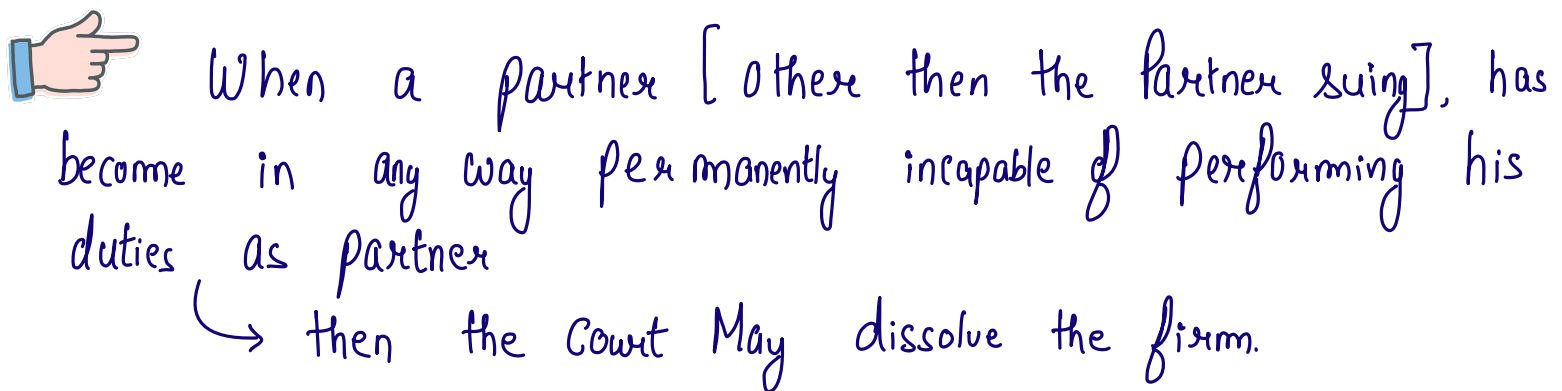 When a partner [other then the Partner suing], has
become in any way permanently incapable of performing his
duties as partner
then the Court May dissolve the firm.